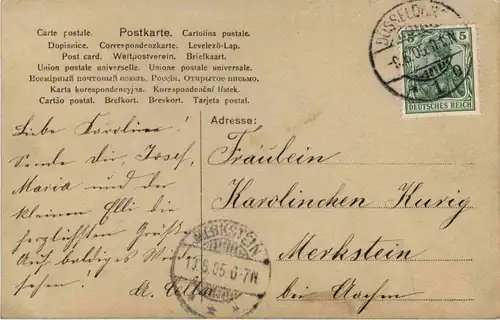 Carte postale. Postkarte. Cartolina postale.
Dopisnice. Correspondenzkarte. Levelező-Lap.
Post card. Weltpostverein. Briefkaart.
Union postale universelle. Unione postale universale.
Всемірный почтовый союзъ. Россія. Открытое письмо.
Karta korespondencyjna. Korespondenční lístek.
Cartão postal. Brefkort. Brevkort. Tarjeta postal.
Adresse:
Liebe Karoline!
Sende dir, Josef,
Maria und der
kleinen Elli die
herzlichsten Grüße
Auf baldiges Wieder
sehen!
Fräulein
Karolinchen Kurig
Merkstein
bei Aachen
DÜSSELDORF
5
DEUTSCHES REICH
MERKSTEIN